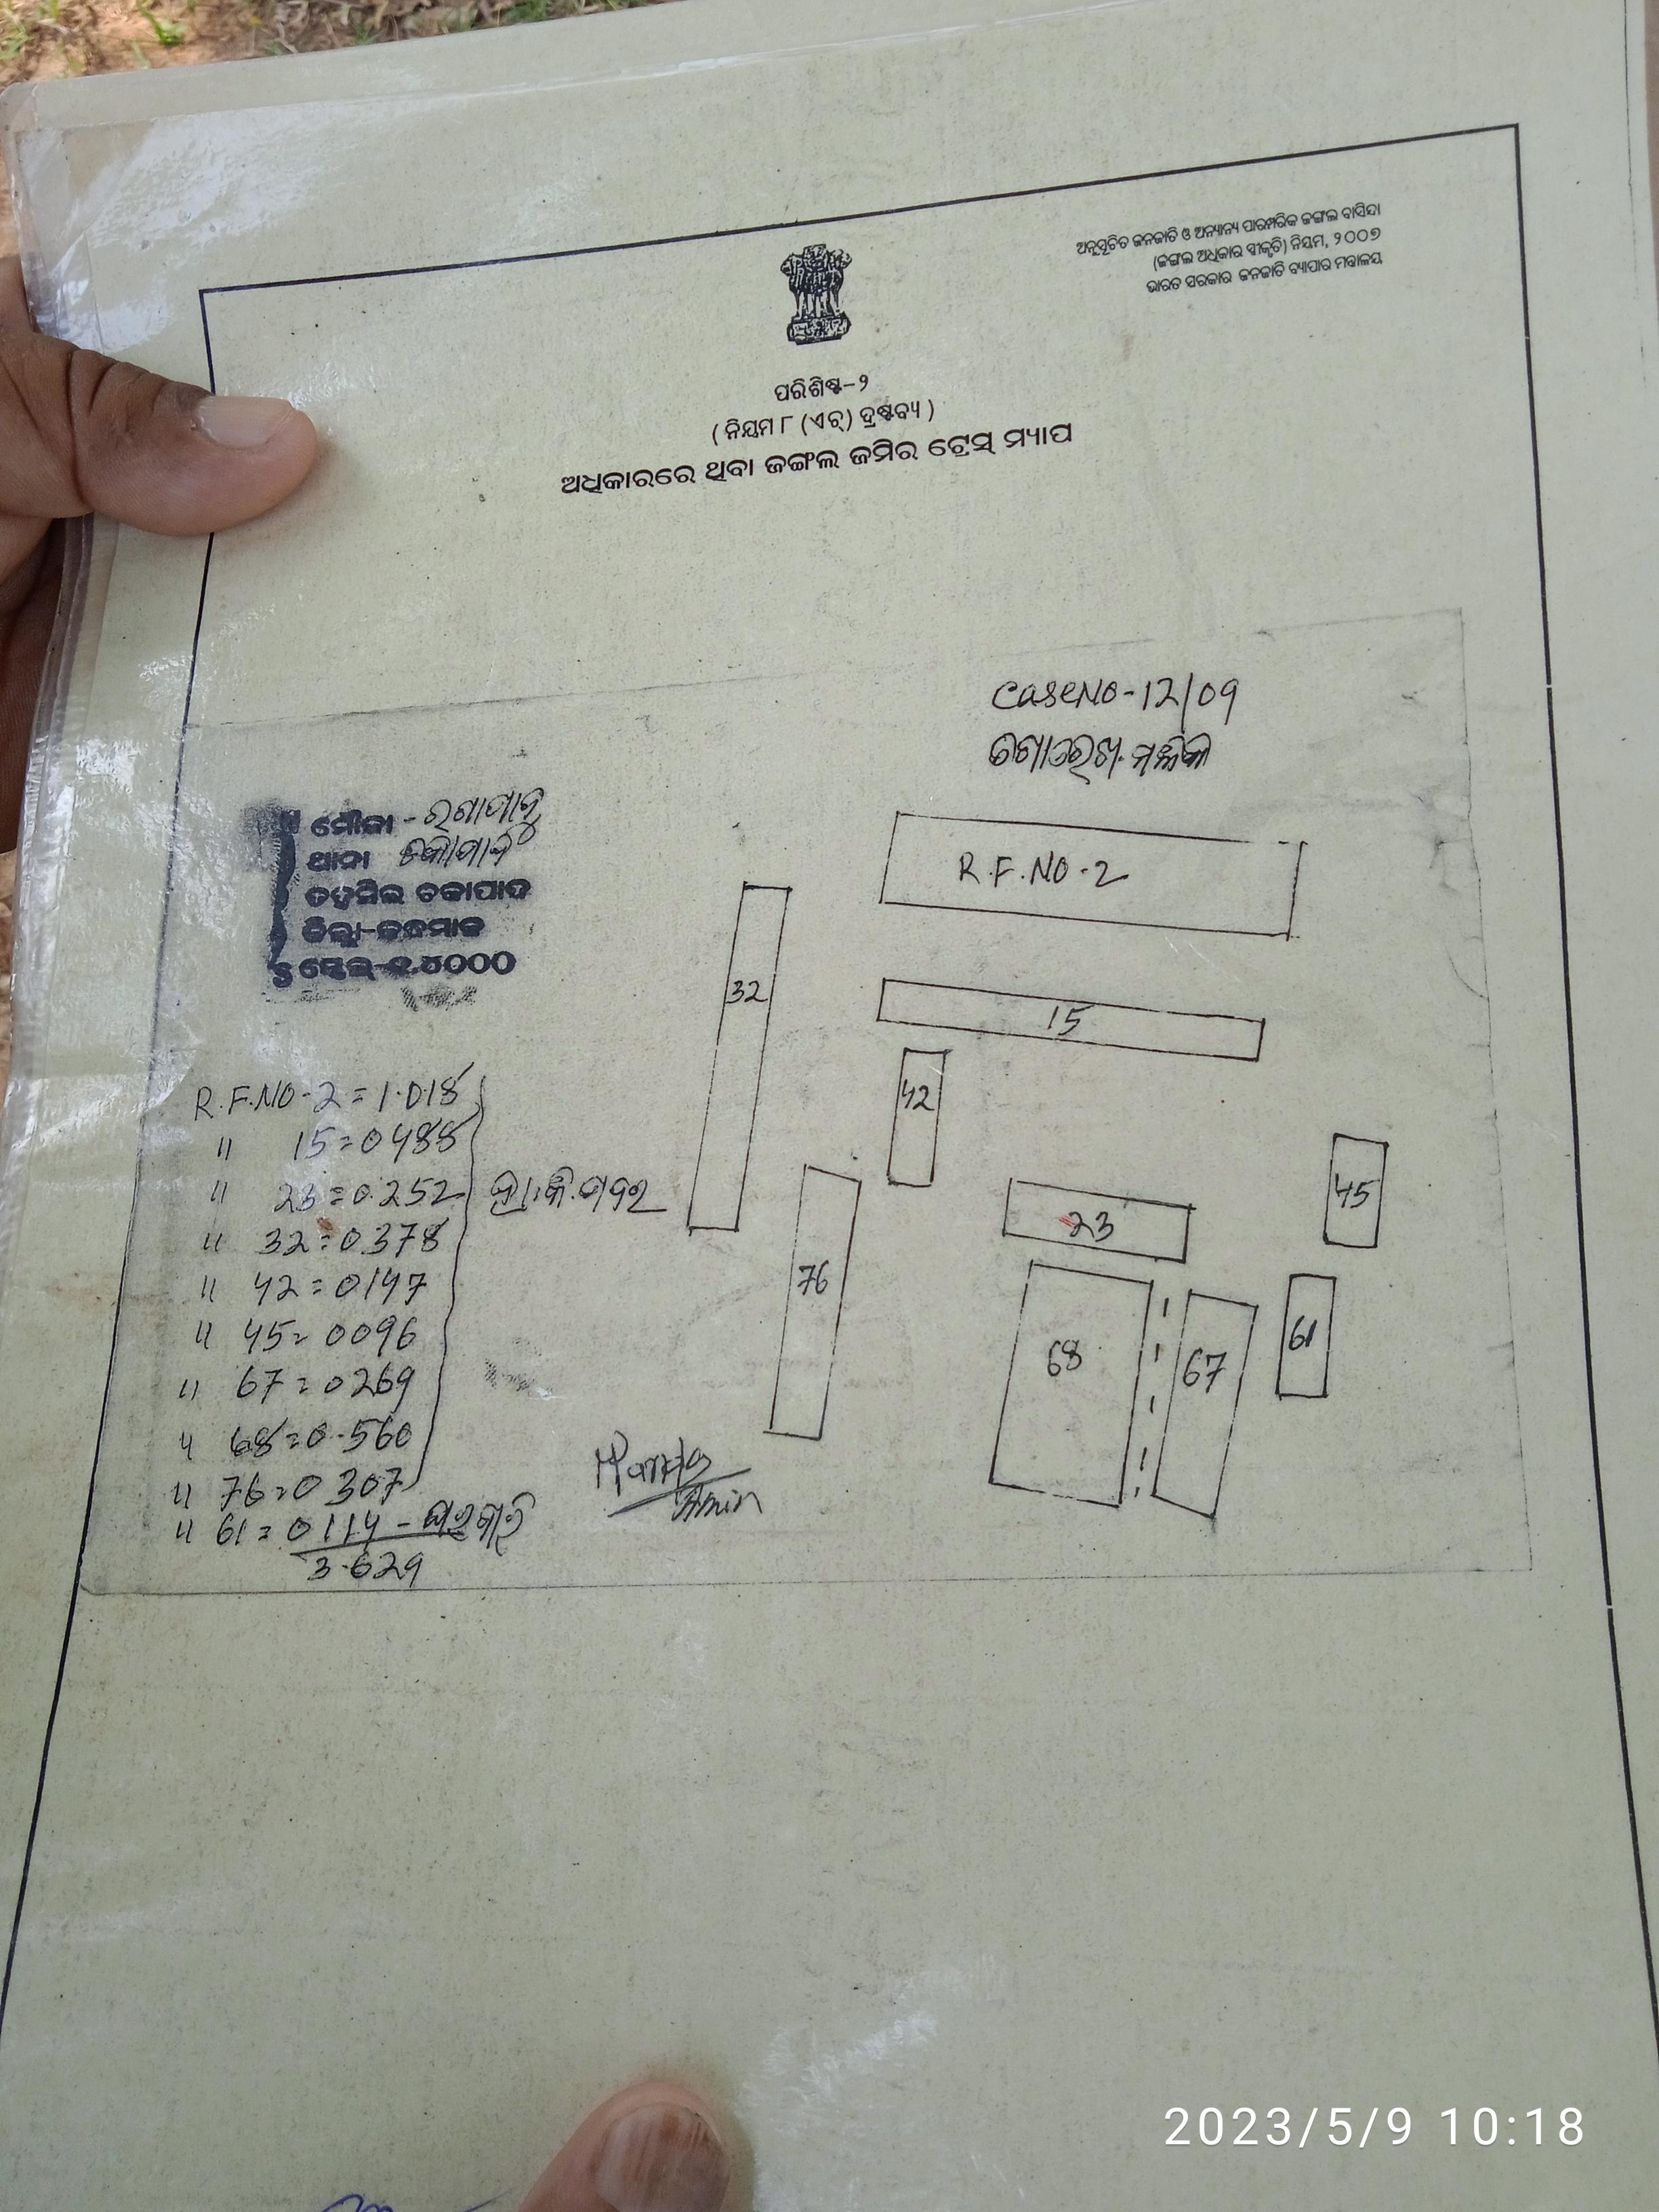 ଅନୁସୂଚିତ ଜନଜାତି ଓ ଅନ୍ୟାନ୍ୟ ପାରମ୍ପରିକ ଜଙ୍ଗଲ ବାସିନ୍ଦା
(ଜଙ୍ଗଲ ଅଧିକାର ସ୍ୱୀକୃତି) ନିୟମ, ୨୦୦୭
ଭାରତ ସରକାର ଜନଜାତି ବ୍ୟାପାର ମନ୍ତ୍ରାଳୟ
ପରିଶିଷ୍ଟ-୨
( ନିୟମ ୮ (ଏଚ୍) ଦ୍ରଷ୍ଟବ୍ୟ )
ଅଧିକାରରେ ଥିବା ଜଙ୍ଗଲ ଜମିର ଟ୍ରେସ୍ ମ୍ୟାପ
Case No - 12/09
ମଲ୍ଲିକ
ମୌଜା -
ଥାନା
ତହସିଲ ଚକାପାଦ
ଜିଲ୍ଲା-କନ୍ଧମାଳ
R.F. NO - 2
32
15
42
45
23
76
68
67
61
R.F. NO - 2 = 1.018
" 15 = 0488
" 23 = 0.252
" 32 = 0.378
" 42 = 0147
" 45 = 0096
" 67 = 0269
" 68 = 0.560
" 76 = 0307
" 61 = 0114 -
3.629
Amin
2023/5/9 10:18